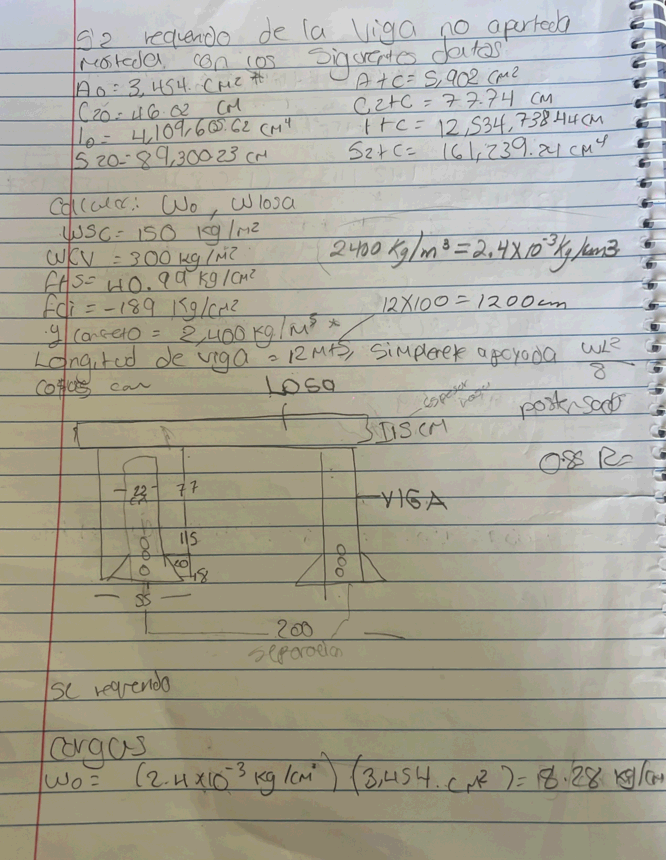 S2 requerido de la viga no apuntada
mostrada, con los siguientes datos
A0 = 3,454. cm2 *
A+C = 5,902 cm2
C20 = 46.02 cm
C2+C = 77.74 cm
I0 = 4,109,605.62 cm4
I+C = 12,534,738.44 cm
S20 = 89,300.23 cm
S2+C = 161,239.21 cm4
Calcular: Wo, Wlosa
WSC = 150 kg/m2
WCV = 300 kg/m2
2400 kg/m3 = 2.4x10-3 kg/cm3
fts = 40.99 kg/cm2
fci = -189 kg/cm2
12x100 = 1200cm
y concreto = 2,400 kg/m3 *
Longitud de viga = 12 mts, simplemente apoyada
WL2
8
LOSA
postensado
I 15 CM
0.85 R=
22
77
VIGA
115
18
55
200
separacion
Se requerido
Cargas
Wo = (2.4x10-3 kg/cm3) (3,454. cm2) = 8.28 kg/cm